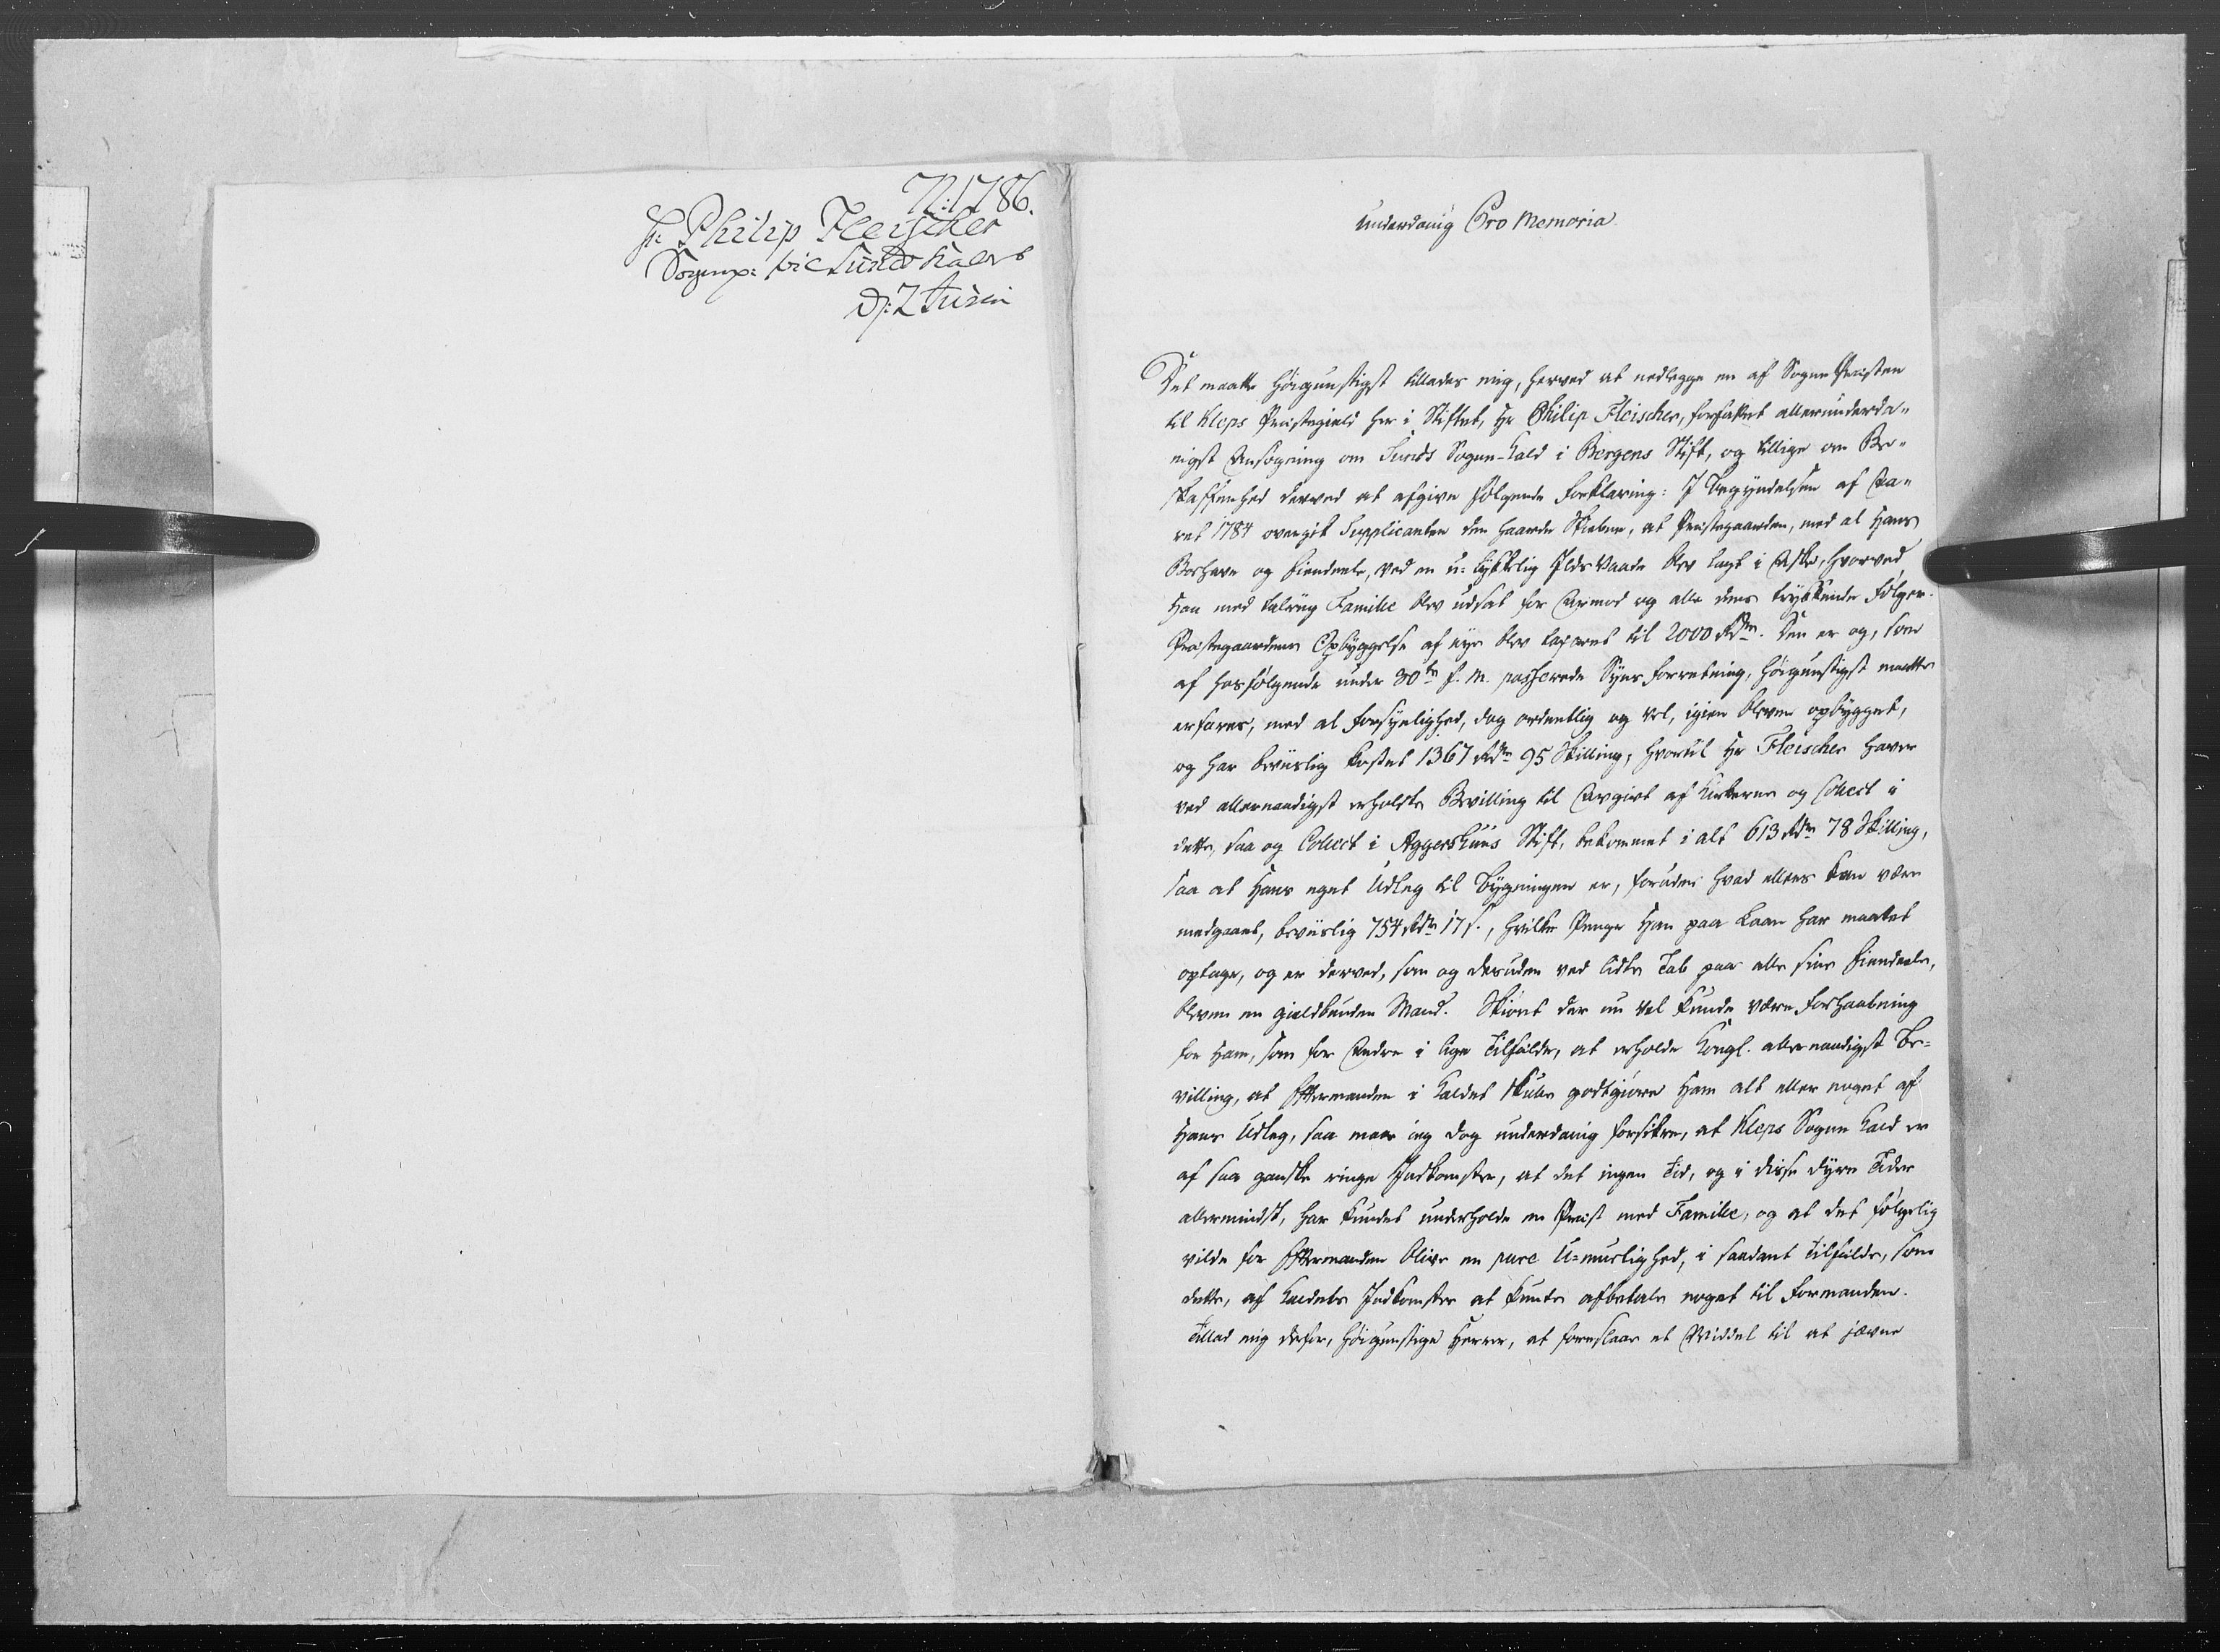 72:1786.
Hr Philip Fleischer
Sogenp: til Sunds Kald
d: 2 Junii
underdanig Pro Memoria
Det maatte høigunstigst tillades mig, herved at nedlegge en af Sogne Præsten
til Kleps Præstegield her i Stiftet, Hr Philip Fleischer, forfattet allerunderda-
nigst Ansøgning om Sunds Sogne-Kald i Bergens Stift, og tillige om Be-
skaffenhed derved at afgive følgende Forklaring: I Begyndelsen af Aa-
ret 1784 overgik Supplicanten den haarde Skiebne, at Præstegaarden, med al Hans
Boehave og Eiendeele, ved en u-lykkelig Ilds Vaade blev lagt i Aske, hvorved
Han med talrig Familie blev udsat for Armod og alle dens trykkende Følger.
Præstegaardens Opbyggelse af nye blev taxeret til 2000 Rdr. Den er og, som
af hosfølgende under 30te f. M. passerede Syns Forretning, høigunstigst maatte
erfares, med al Forsynlighed, dog ordentlig og vel, igien bleven opbygget,
og har beviislig kostet 1367 Rdr 95 Skilling, hvortil Hr Fleischer haver
ved allernaadigst erholdte Bevilling til Avgivt af Kirkerne og Collect i
dette, saa og Collect i Aggershuus Stift, bekommet i alt 613 Rdr 78 Skilling,
saa at Hans eget Udleg til Bygningen er, foruden hvad ellers kan være
medgaaet, beviislig 754 Rdr 17 s., hvilke Penge Han paa Laan har maattet
optage, og er derved, som og desuden ved lidte Tab paa alle sine Eiendeele,
bleven en gieldbunden Mand. Skiønt der nu vel kunde være Forhaabning
for Ham, som for Andre i lige Tilfælde, at erholde Kongl. allernaadigst Be-
villing, at Eftermanden i Kaldet skulle godtgiøre Ham alt eller noget af
Hans Udleg, saa maae ieg dog underdanig forsikre, at Kleps Sogne Kald er
af saa ganske ringe Indkomster, at det ingen Tid, og i disse dyre Tider
allermindst, har kundet underholde en Præst med Familie, og at det følgelig
vilde for Eftermanden blive en pure U-muelighed, i saadant Tilfælde, som
dette, af Kaldets Indkomster at kunde afbetale noget til Formanden.
Tillad mig derfor, høigunstige Herrer, at foreslaae et Middel til at jævne